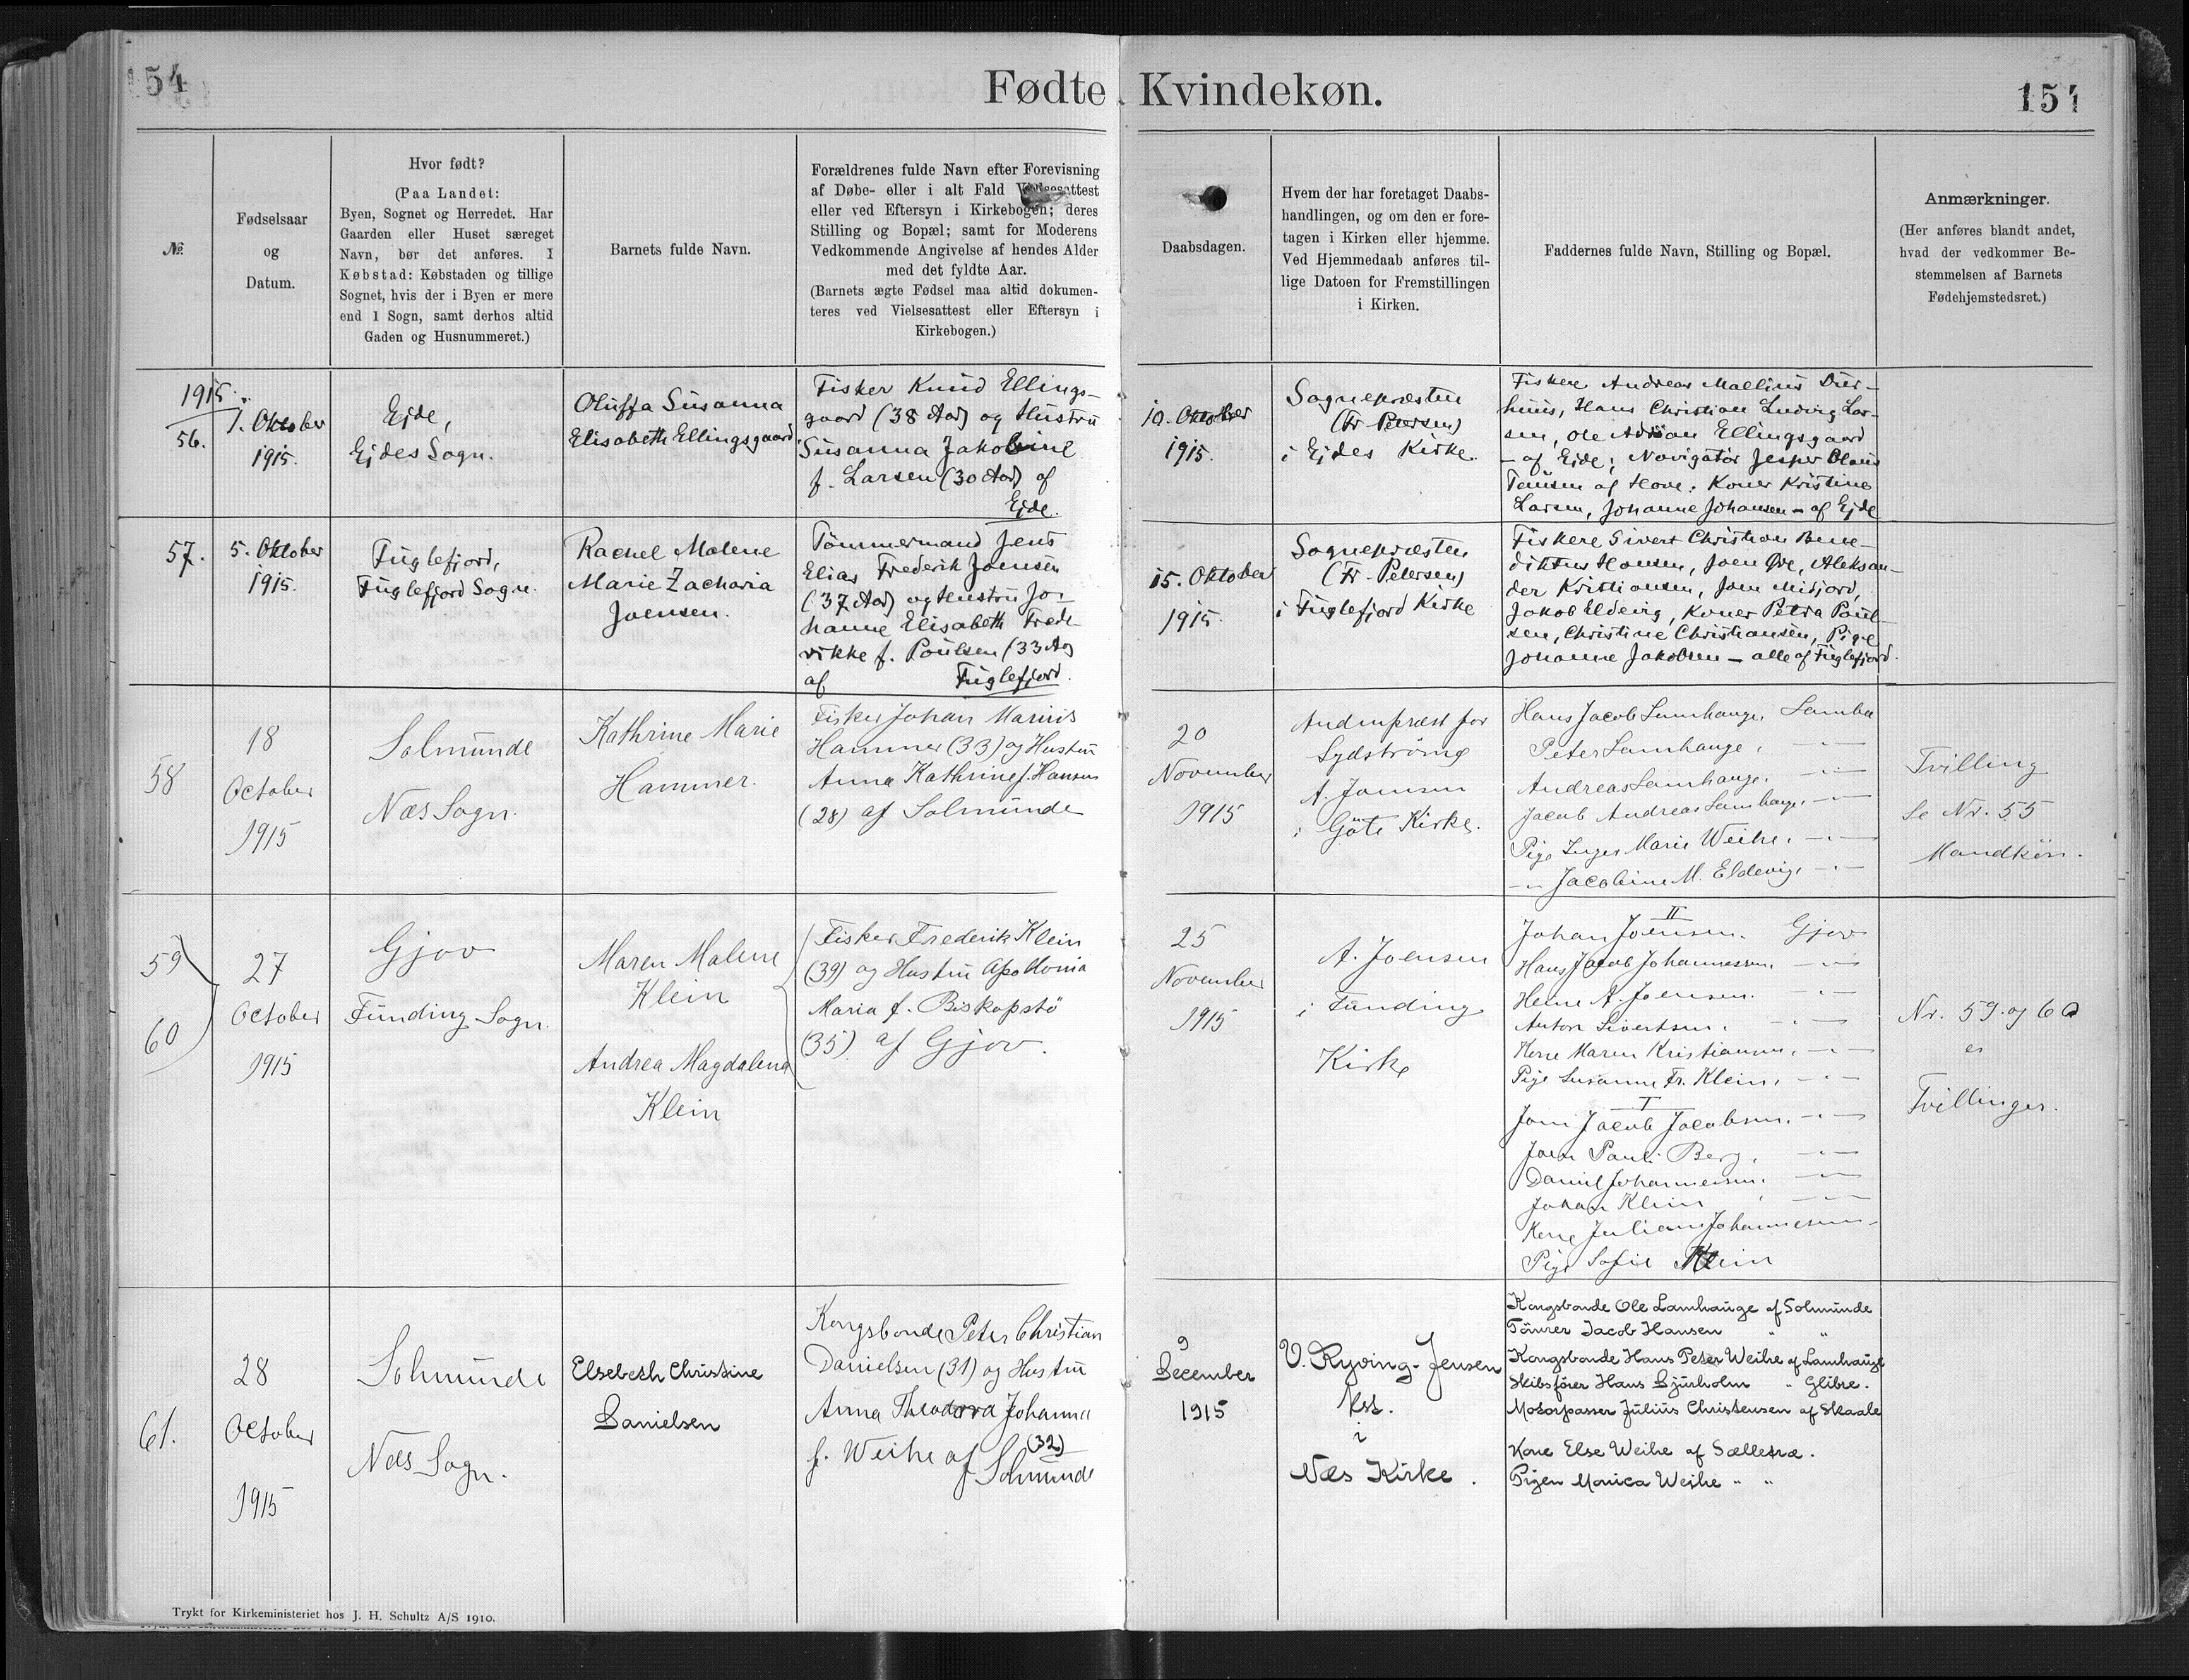 154
Fødte Kvindekøn.
154
№
Fødselsaar
og
Datum.
Hvor født?
(Paa Landet:
Byen, Sognet og Herredet. Har
Gaarden eller Huset særeget
Navn, bør det anføres. I
Købstad: Købstaden og tillige
Sognet, hvis der i Byen er mere
end 1 Sogn, samt derhos altid
Gaden og Husnummeret.)
Barnets fulde Navn.
Forældrenes fulde Navn efter Forevisning
af Døbe- eller i alt Fald Vielsesattest
eller ved Eftersyn i Kirkebogen; deres
Stilling og Bopæl; samt for Moderens
Vedkommende Angivelse af hendes Alder
med det fyldte Aar.
(Barnets ægte Fødsel maa altid dokumen-
teres ved Vielsesattest eller Eftersyn i
Kirkebogen.)
Daabsdagen.
Hvem der har foretaget Daabs-
handlingen, og om den er fore-
tagen i Kirken eller hjemme.
Ved Hjemmedaab anføres til-
lige Datoen for Fremstillingen
i Kirken.
Faddernes fulde Navn, Stilling og Bopæl.
Anmærkninger.
(Her anføres blandt andet,
hvad der vedkommer Be-
stemmelsen af Barnets
Fødehjemstedsret.)
1915.
56.
1. Oktober
1915.
Ejde,
Ejdes Sogn.
Oluffa Susanna
Elisabeth Ellingsgaard.
Fisker Knud Ellings-
gaard (38 Aar) og Hustru
Susanna Jakobine
f. Larsen (30 Aar) af
Ejde.
10. Oktober
1915.
Sognepræsten
(Fr. Petersen)
i Ejdes Kirke.
Fiskere Andreas Mallinus Dur-
huus, Hans Christian Ludvig Lar-
sen, Ole Adrian Ellingsgaard
- af Ejde; Navigatør Jesper Olaus
Tausen af Hove. Koner Kristine
Larsen, Johanne Johansen - af Ejde
57.
5. Oktober
1915.
Fuglefjord,
Fuglefjord Sogn.
Rachel Malene
Marie Zacharia
Joensen.
Tømmermand Jens
Elias Frederik Joensen
(37 Aar) og Hustru Jo-
hanne Elisabeth Frede-
rikke f. Poulsen (33 Aar)
af Fuglefjord.
15. Oktober
1915.
Sognepræsten
(Fr. Petersen)
i Fuglefjord Kirke
Fiskere Sivert Christian Bene-
diktus Hansen, Joen Øre, Aleksan-
der Kristiansen, Joen Midjord,
Jakob Eldevig, Koner Petra Poul-
sen, Christine Christiansen, Pige
Johanne Jakobsen - alle af Fuglefjord.
58
18
October
1915
Solmunde
Næs Sogn.
Kathrine Marie
Hammer.
Fisker Johan Marius
Hammer (33) og Hustru
Anna Kathrine f. Hansen
(28) af Solmunde
20
November
1915
Andenpræst for
Sydstrømø
A. Joensen
i Göte Kirke.
Hans Jacob Lamhauge, Lamba
Peter Lamhauge, -"-
Andreas Lamhauge. -"-
Jacob Andreas Lamhauge. -"-
Pige Inger Marie Weihe. -"-
-"- Jacobine M. Eldevig, -"-
Tvilling
Se Nr. 55
Mandkön.
59
60
27
October
1915
Gjov
Funding Sogn.
Maren Malene
Klein
Andrea Magdalena
Klein
Fisker Frederik Klein
(39) og Hustru Apollonia
Maria f. Biskopstö
(35). af Gjov.
25
November
1915
A. Joensen
i Funding
Kirke
II
Johan Joensen. Gjov
Hans Jacob Johannesen. -"-
Heine A. Joensen. -"-
Anton Sivertsen. -"-
Kone Maren Kristiansen, -"-
Pige Susanne Fr. Klein, -"-
I
Joen Jacob Jacobsen. -"-
Joen Pauli Berg. -"-
Daniel Johannesen. -"-
Johan Klein -"-
Kone Juliane Johannesen -
Pige Sofie Klein
Nr. 59. og 60
er
Tvillinger.
61.
28
October
1915
Solmunde
Næs Sogn.
Elsebeth Christine
Danielsen
Kongsbonde Peter Christian
Danielsen (31) og Hustru
Anna Theodora Johanna
f. Weihe (32) af Solmunde
9
December
1915
V. Ryving-Jensen
kst.
i
Næs Kirke.
Kongsbonde Ole Lamhauge af Solmunde
Tömrer Jacob Hansen " "
Kongsbonde Hans Peter Weihe af Lamhauge
Skibsfører Hans Djurholm " Glibre.
Motorpasser Julius Christensen af Skaale
Kone Else Weihe af Sælletræ.
Pigen Monica Weihe " "
Trykt for Kirkeministeriet hos J. H. Schultz A/S 1910.